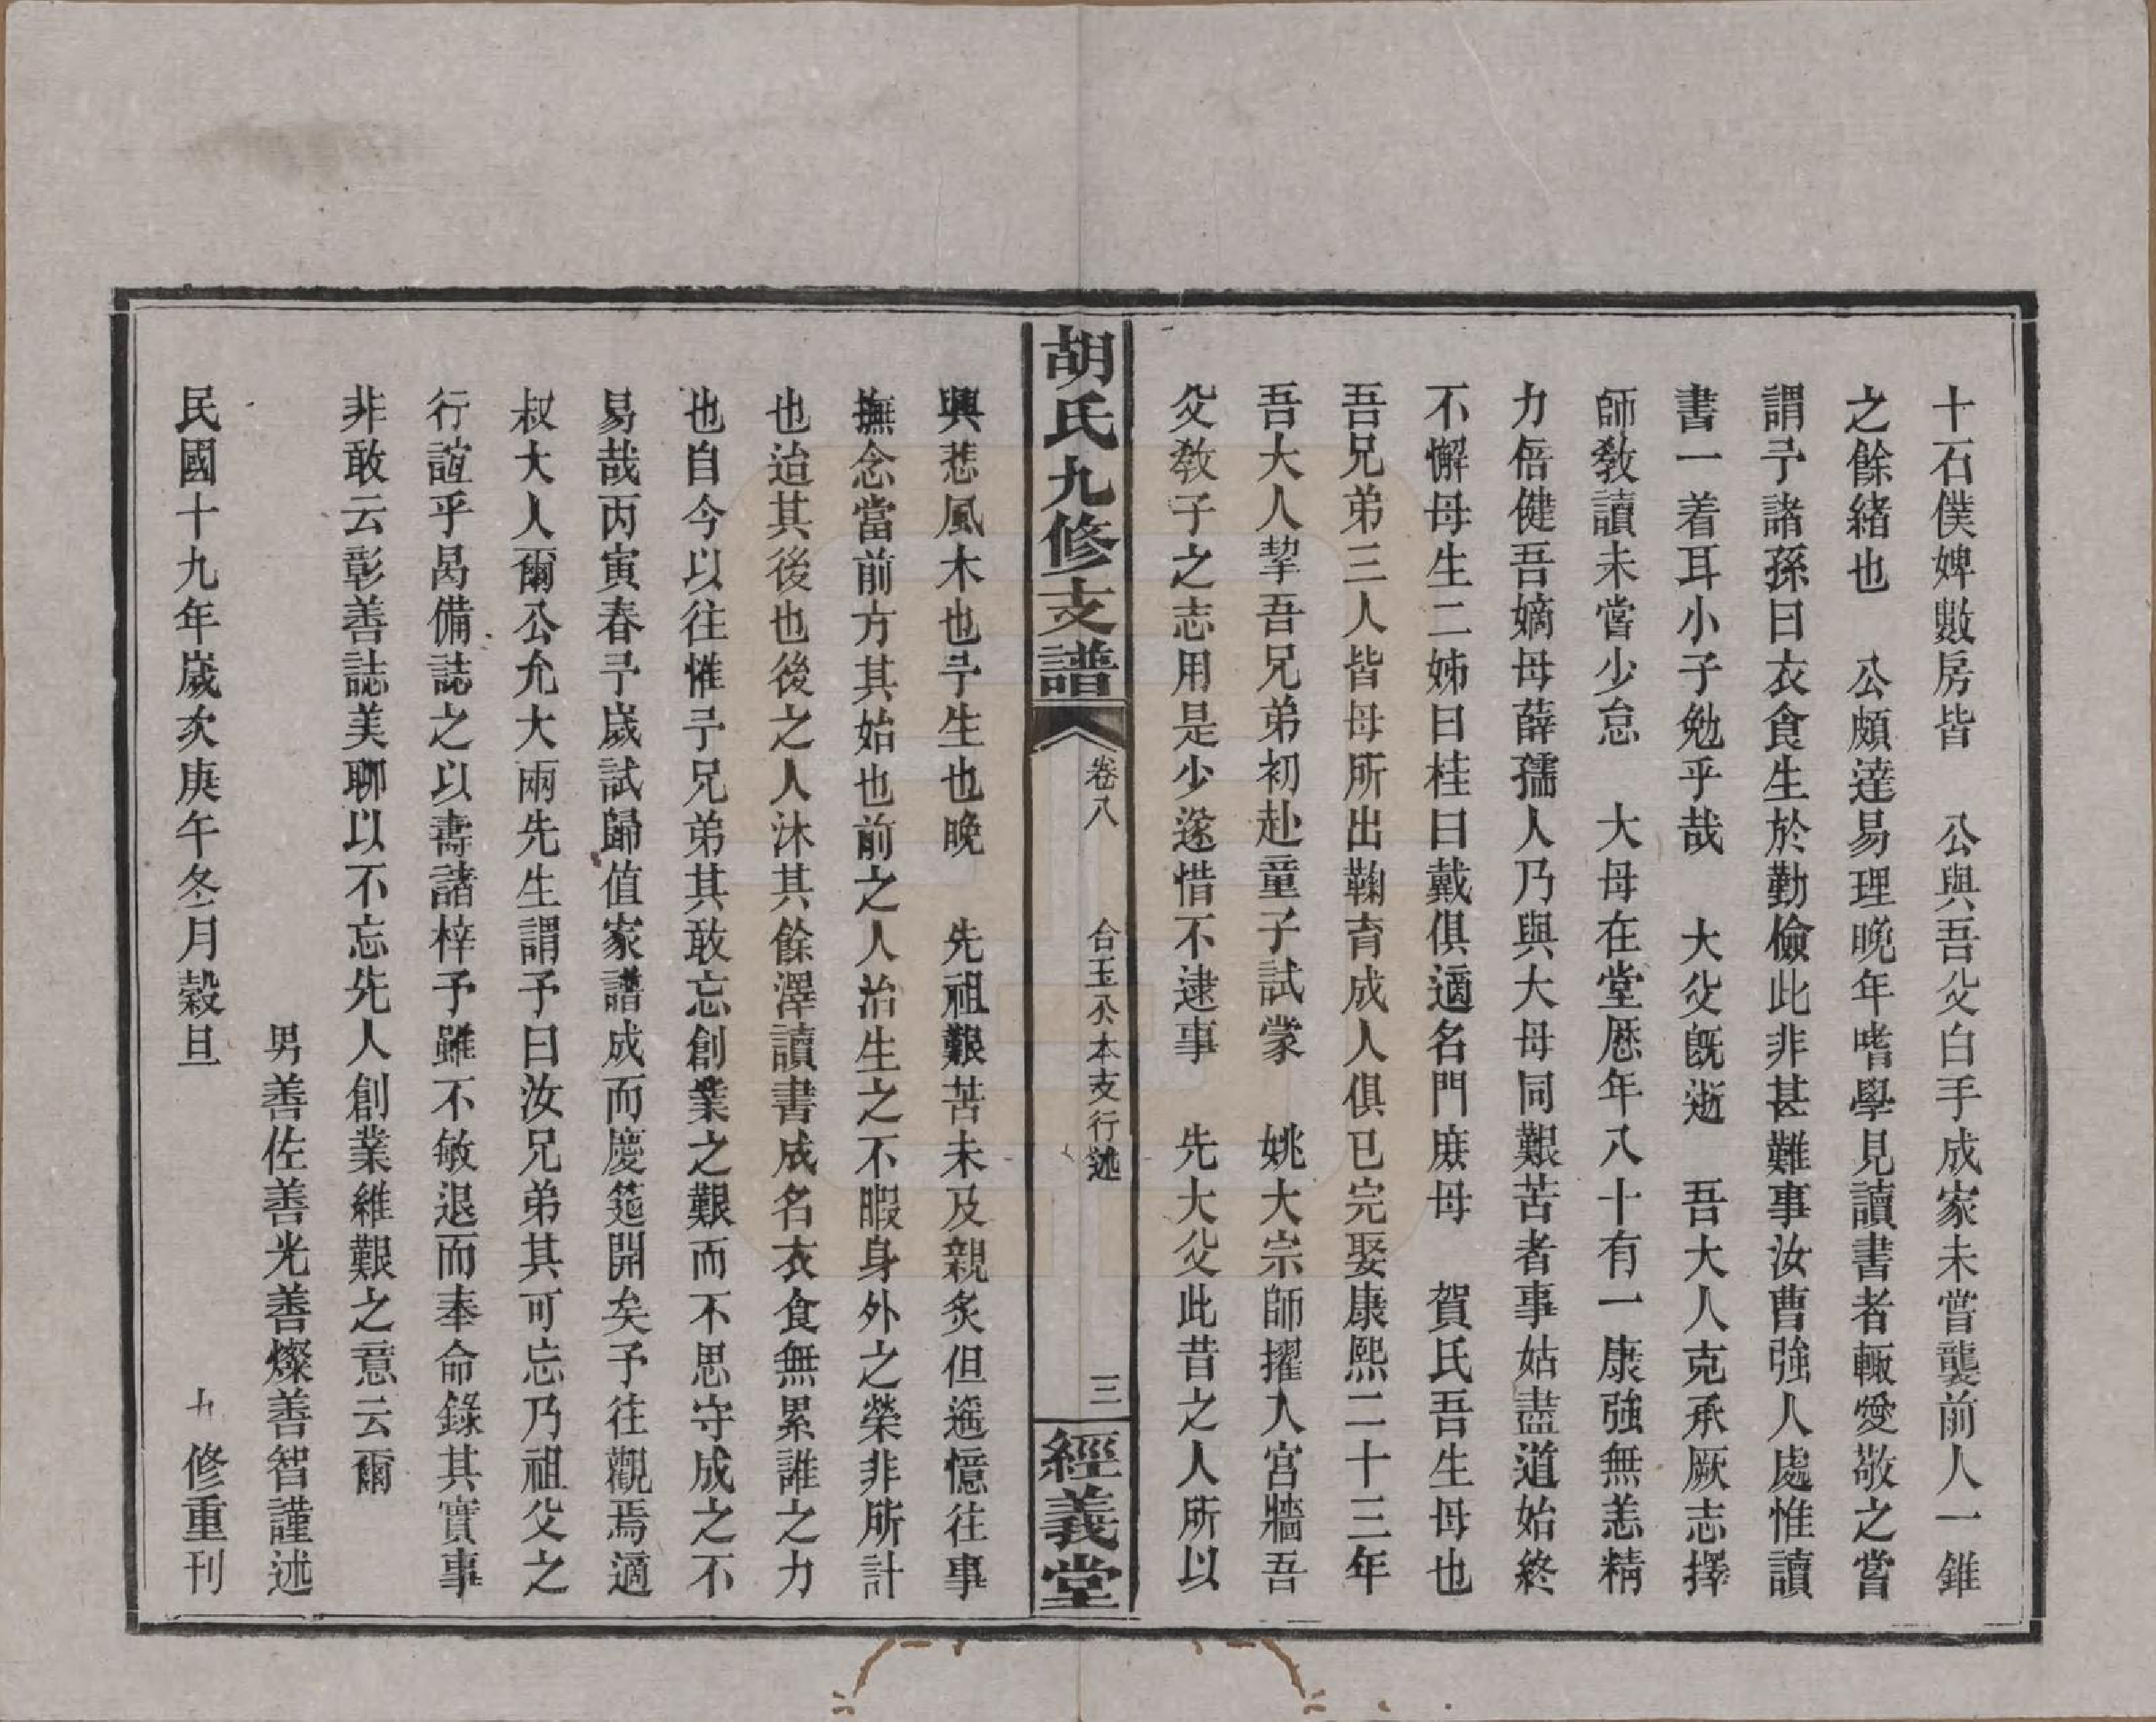 十石僕婢數房皆　公與吾父白手成家未嘗襲前人一錐
之餘緒也　公頗達易理晚年嗜學見讀書者輒愛敬之嘗
謂予諸孫曰衣食生於勤儉此非甚難事汝曹強人處惟讀
書一着耳小子勉乎哉　大父既逝　吾大人克承厥志擇
師教讀未嘗少怠　大母在堂歷年八十有一康強無恙精
力倍健吾嫡母薛孺人乃與大母同艱苦者事姑盡道始終
不懈母生二姊曰桂曰戴俱適名門庶母　賀氏吾生母也
吾兄弟三人皆母所出鞠育成人俱已完娶康熙二十三年
吾大人挈吾兄弟初赴童子試蒙　姚大宗師擢入宮牆吾
父教子之志用是少遂惜不逮事　先大父此昔之人所以
胡氏九修支譜
卷八　合玉公本支行述　三
經義堂
興悲風木也予生也晚　先祖艱苦未及親炙但遙憶往事
撫念當前方其始也前之人治生之不暇身外之榮非所計
也迨其後也後之人沐其餘澤讀書成名衣食無累誰之力
也自今以往惟予兄弟其敢忘創業之艱而不思守成之不
易哉丙寅春予歲試歸值家譜成而慶筵開矣予往觀焉適
叔大人爾公允大兩先生謂予曰汝兄弟其可忘乃祖父之
行誼乎曷備誌之以壽諸梓予雖不敏退而奉命錄其實事
非敢云彰善誌美聊以不忘先人創業維艱之意云爾
男善佐善光善燦善智謹述
民國十九年歲次庚午冬月穀旦　九修重刊